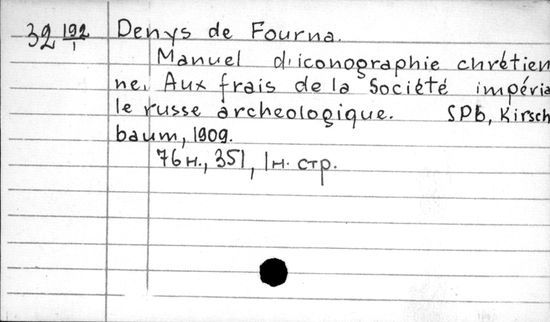 32 192/1 Denys de Fourna.
Manuel d'iconographie chrétien
ne. Aux frais de la Société impéria
le russe archeologique. SPb, Kirsch
baum, 1909.
76 н., 351, 1 н. стр.